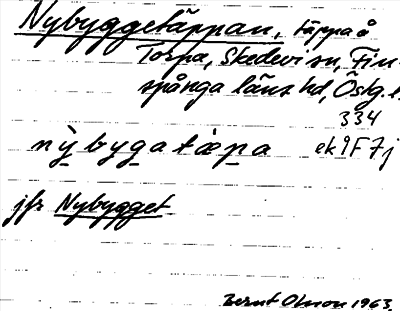 Nybyggetäppan, täppa å
Torpa, Skedevi sn, Fin-
spånga läns hd, Östg. l.
334
nỳbygatæpa ek 9F7j
jfr Nybygget
Bernt Olsson 1963.